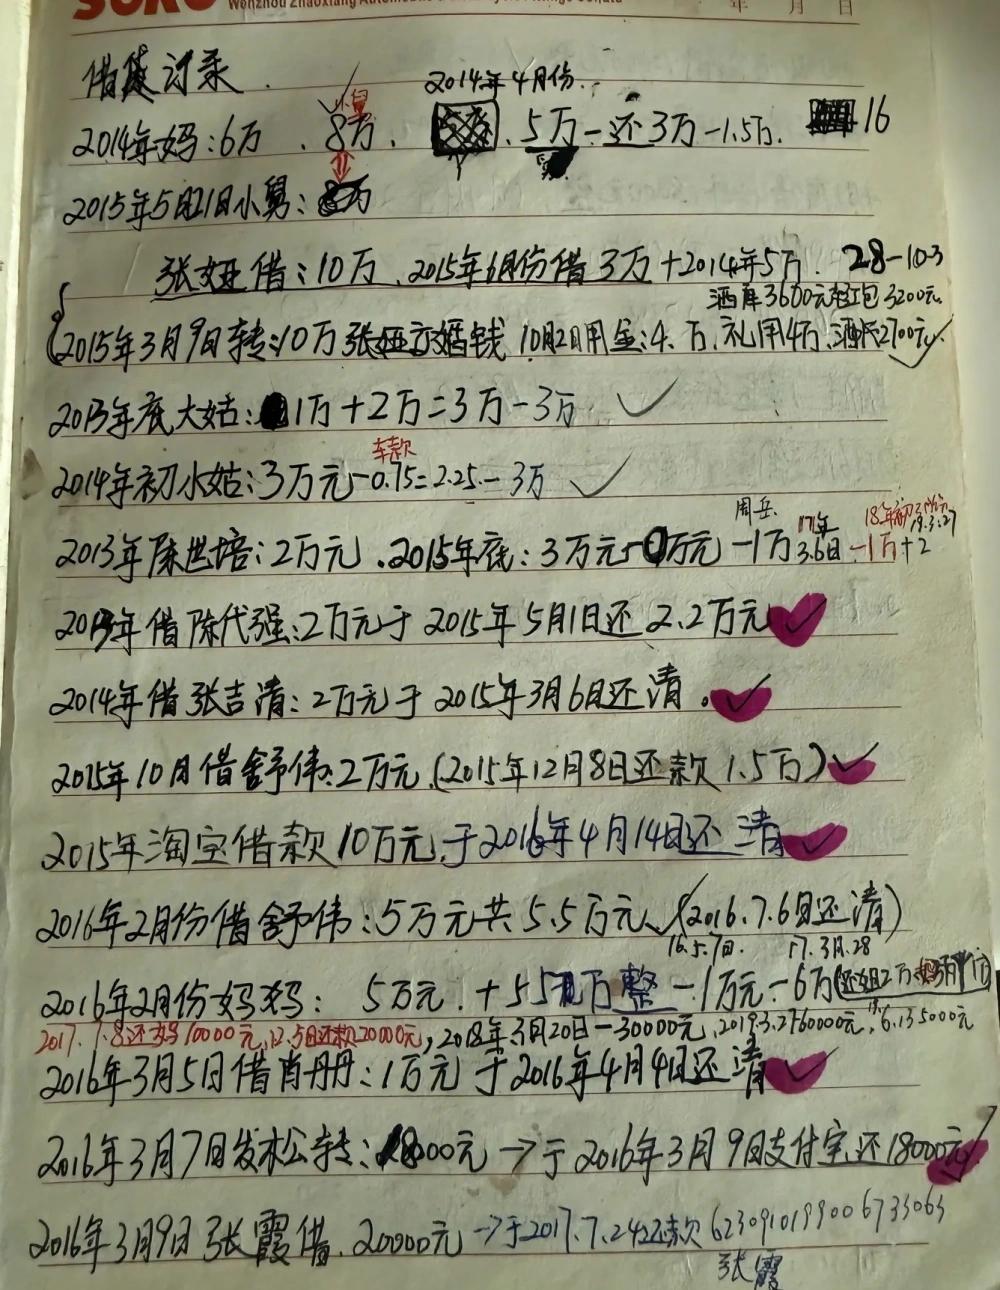 年 月 日
借贷记录.
2014年4月份.
2014年妈:6万 、8万、5万-还3万-1.5万. 16
小舅
2015年5月21日小舅:
张娅借:10万、2015年6月份借3万+2014年5万. 28-10-3
酒席3600元红包3200元
2015年3月9日转:10万张娅 婚钱 10月2日用金:4.万、礼用4万、2700元
2013年底大姑:1万+2万=3万-3万
车款
2014年初小姑:3万元-0.75=2.25-3万
周岳 17年3.6日 19.3.27
2013年陈世培:2万元.2015年底:3万元-0万元-1万 -1万+2
2013年借陈代强:2万元于2015年5月1日还2.2万元
2014年借张吉清:2万元于2015年3月6日还清.
2015年10月借舒伟:2万元(2015年12月8日还款1.5万)
2015年淘宝借款10万元,于2016年4月14日还清
2016年2月份借舒伟:5万元共5.5万元(2016.7.6日还清)
16.5.7日. 17.3月.28
2016年2月份妈妈: 5万元.+5.5 万整-1万元-6万
2017.7.8还妈10000元,12.5日还款20000元,2018年3月20日-30000元,2019.3.2760000元,6.135000元
2016年3月5日借肖丹丹:1万元于2016年4月4日还清
2016年3月7日发林公转:18000元→于2016年3月9日支付宝还18000元
2016年3月9日张霞借.20000元→于2017.7.24还款6230910199006733063
张霞